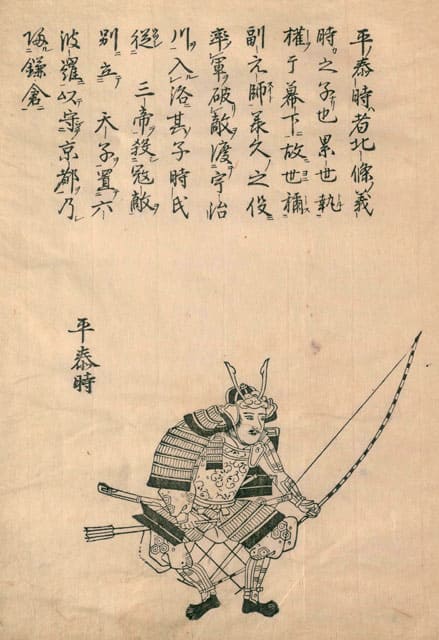 平泰時者北條義
時之子也累世執
權于幕下故世稱
副元帥承久之役
率軍破敵渡宇治
川入洛其子時氏
徙三帝殺寇敵
別立天子置六
波羅以守京都乃
歸鎌倉
平泰時